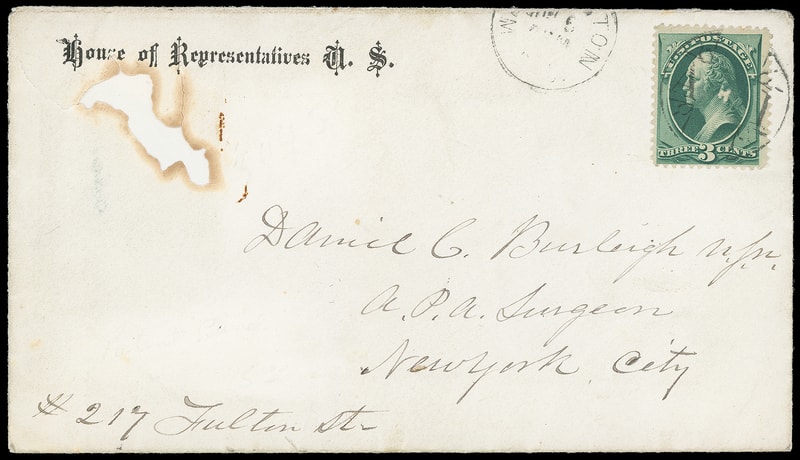 House of Representatives U. S.
WASHINGTON
U.S. POSTAGE
THREE 3 CENTS
Daniel C. Burleigh
A. P. A. Surgeon
New York City
# 217 Fulton St